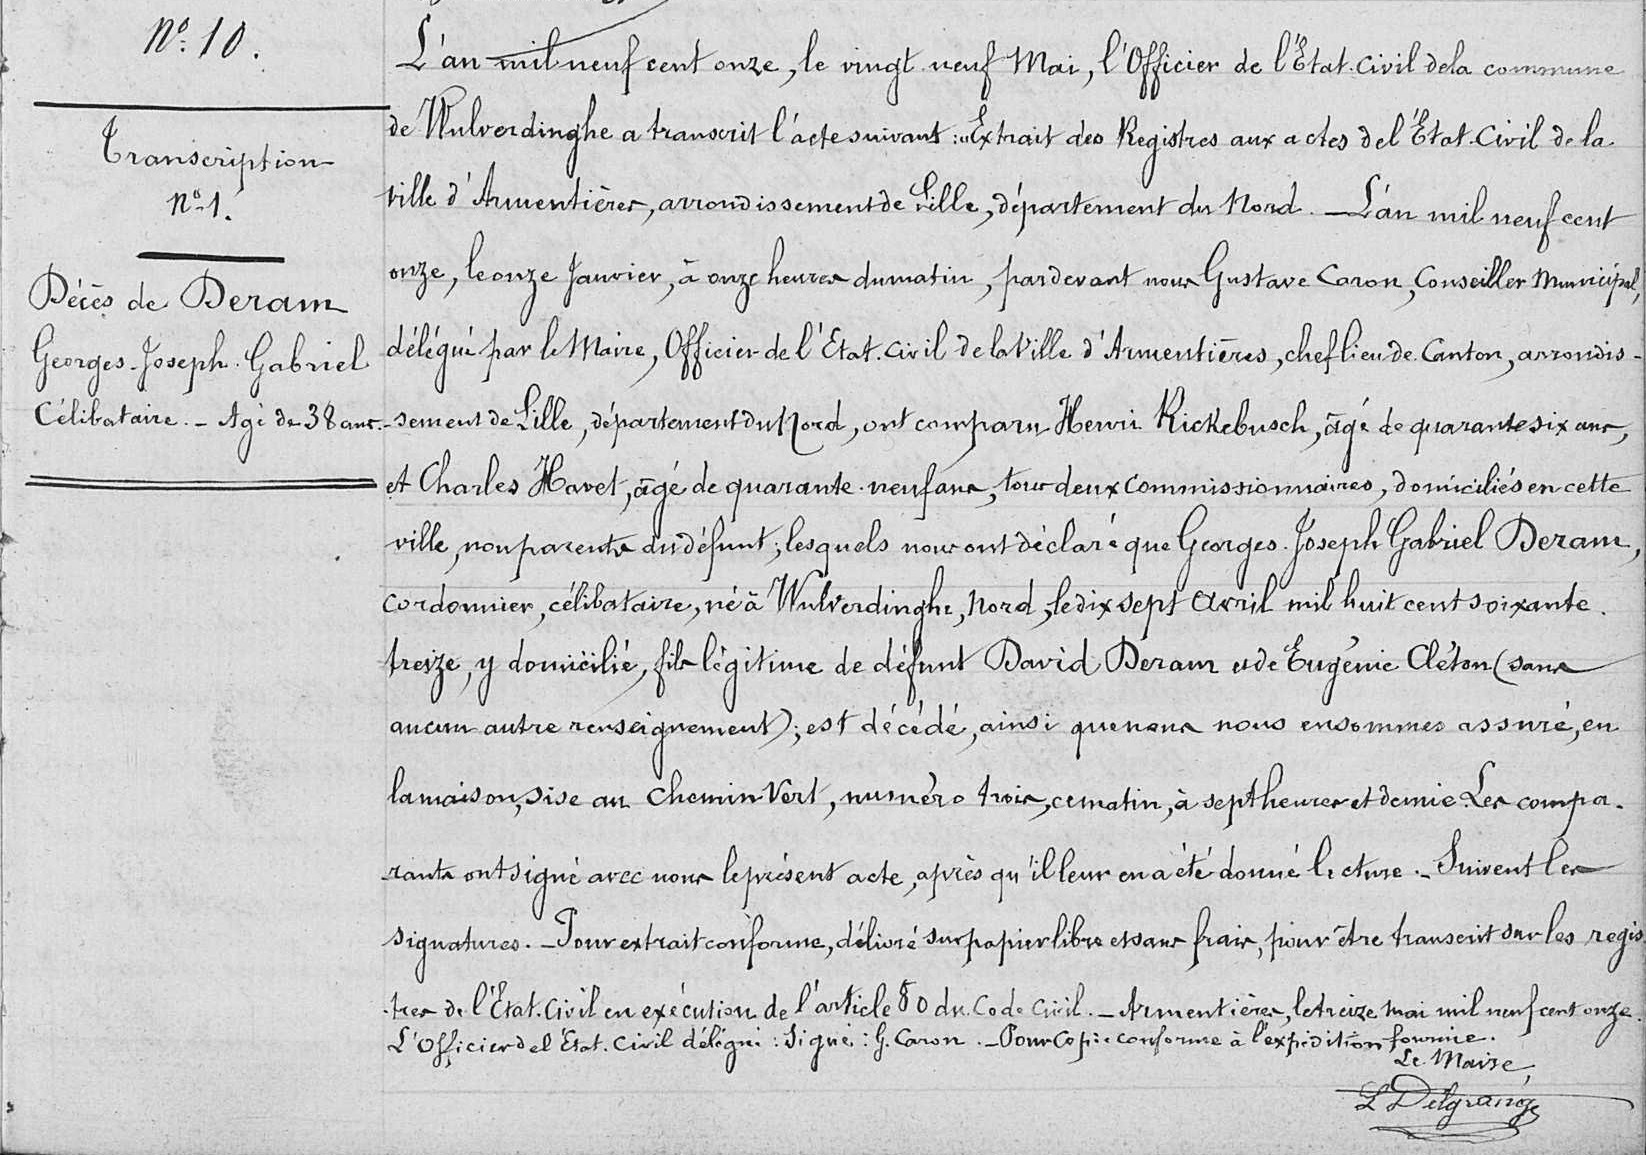 N° 10.
Transcription
N° 1.
Décès de Deram
Georges-Joseph-Gabriel
Célibataire. - Agé de 38 ans.
L'an mil neuf cent onze, le vingt neuf Mai, l'Officier de l'Etat-Civil de la commune
de Wulverdinghe a transcrit l'acte suivant : « Extrait des Registres aux actes de l'Etat-Civil de la
ville d'Armentières, arrondissement de Lille, département du Nord. — L'an mil neuf cent
onze, le onze Janvier, à onze heures du matin, par devant nous Gustave Caron, Conseiller Municipal,
délégué par le Maire, Officier de l'Etat-Civil de la Ville d'Armentières, chef lieu de Canton, arrondis-
-sement de Lille, département du Nord, ont comparu Henri Rickebusch, âgé de quarante six ans,
et Charles Havet, âgé de quarante-neuf ans, tous deux Commissionnaires, domiciliés en cette
ville, non parents du défunt ; lesquels nous ont déclaré que Georges-Joseph Gabriel Deram,
Cordonnier, célibataire, né à Wulverdinghe, Nord, le dix sept Avril mil huit cent soixante-
treize, y domicilié, fils légitime de défunt David Deram et de Eugénie Cléton (sans
aucun autre renseignement) ; est décédé, ainsi que nous nous en sommes assuré, en
la maison, sise au Chemin-Vert, numéro trois, ce matin, à sept heures et demie. Les compa-
rants ont signé avec nous le présent acte, après qu'il leur en a été donné lecture. - Suivent les
signatures. - Pour extrait conforme, délivré sur papier libre et sans frais, pour être transcrit sur les regis
-tres de l'Etat-Civil en exécution de l'article 80 du Code Civil. - Armentières, le treize mai mil neuf cent onze.
L'Officier de l'Etat-Civil délégué : Signé : G. Caron. - Pour Copie conforme à l'expédition fournie.
Le Maire,
L Delgrange